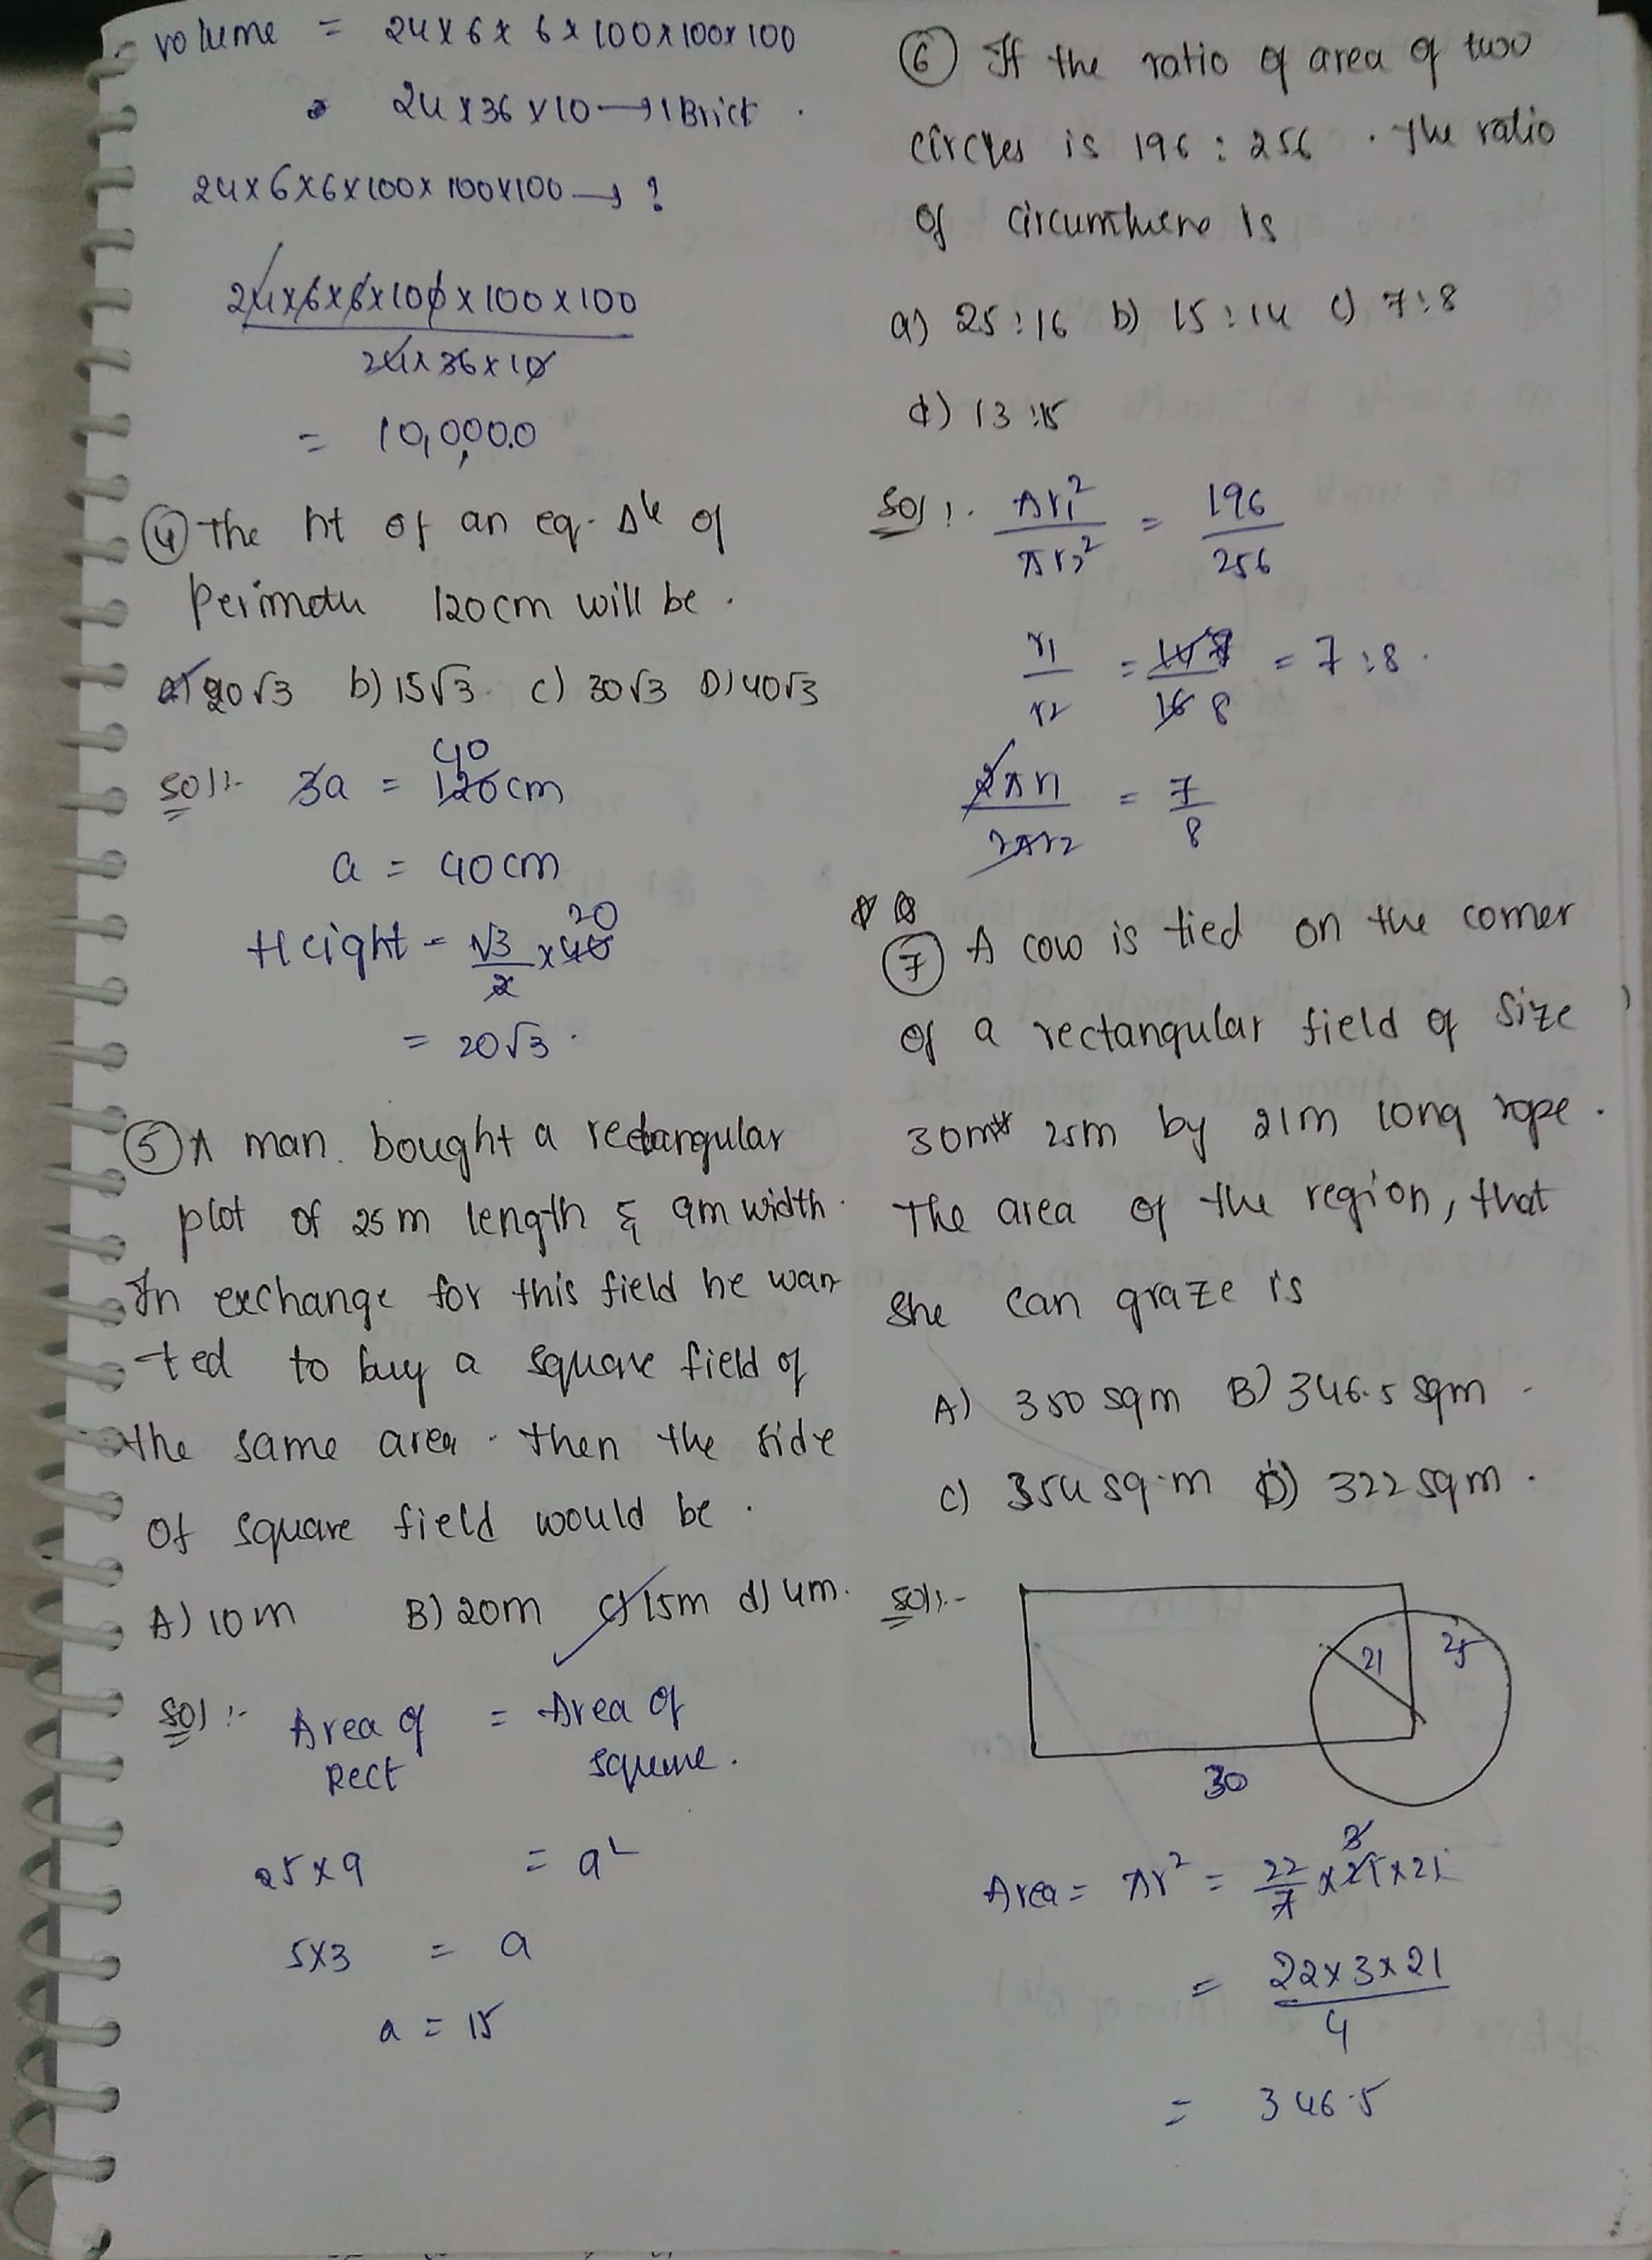 volume = 24 x 6 x 6 x 100 x 100 x 100
24 x 36 x 10 → 1 Brick .
24 x 6 x 6 x 100 x 100 x 100 → ?
24 x 6 x 6 x 100 x 100 x 100
24 x 36 x 10
= 10,000.0
④ The ht of an eq. Δle of
Perimetu 120cm will be .
a) 20√3 b) 15√3 c) 30√3 D) 40√3
40
sol:- 3a = 120cm
a = 40cm
20
Height = √3 x 40
2
= 20√3 .
⑤ A man. bought a rectangular
plot of 25m length & 9m width.
In exchange for this field he wan
ted to buy a square field of
the same area . then the side
Of square field would be .
A) 10m B) 20m c) 15m d) 4m.
Sol :- Area of = Area of
Rect square .
25 x 9 = a²
5x3 = a
a = 15
⑥ If the ratio of area of two
circles is 196 : 256 . The ratio
of circumthere is
a) 25:16 b) 15:14 c) 7:8
d) 13:15
Sol :- πr₁² = 196
πr₂² 256
r₁ = 14 7 = 7:8 .
r₂ 16 8
2πr1 = 7
2πr2 8
⑦ A cow is tied on the corner
of a rectangular field of size
30m* 25m by 21m long rope .
The area of the region, that
she can graze is
A) 350 sqm B) 346.5 sqm .
c) 354 sq.m D) 322 sqm .
Sol:-
21 25
30
3
Area = πr² = 22 x 21 x 21
7
= 22x3x21
4
= 346.5